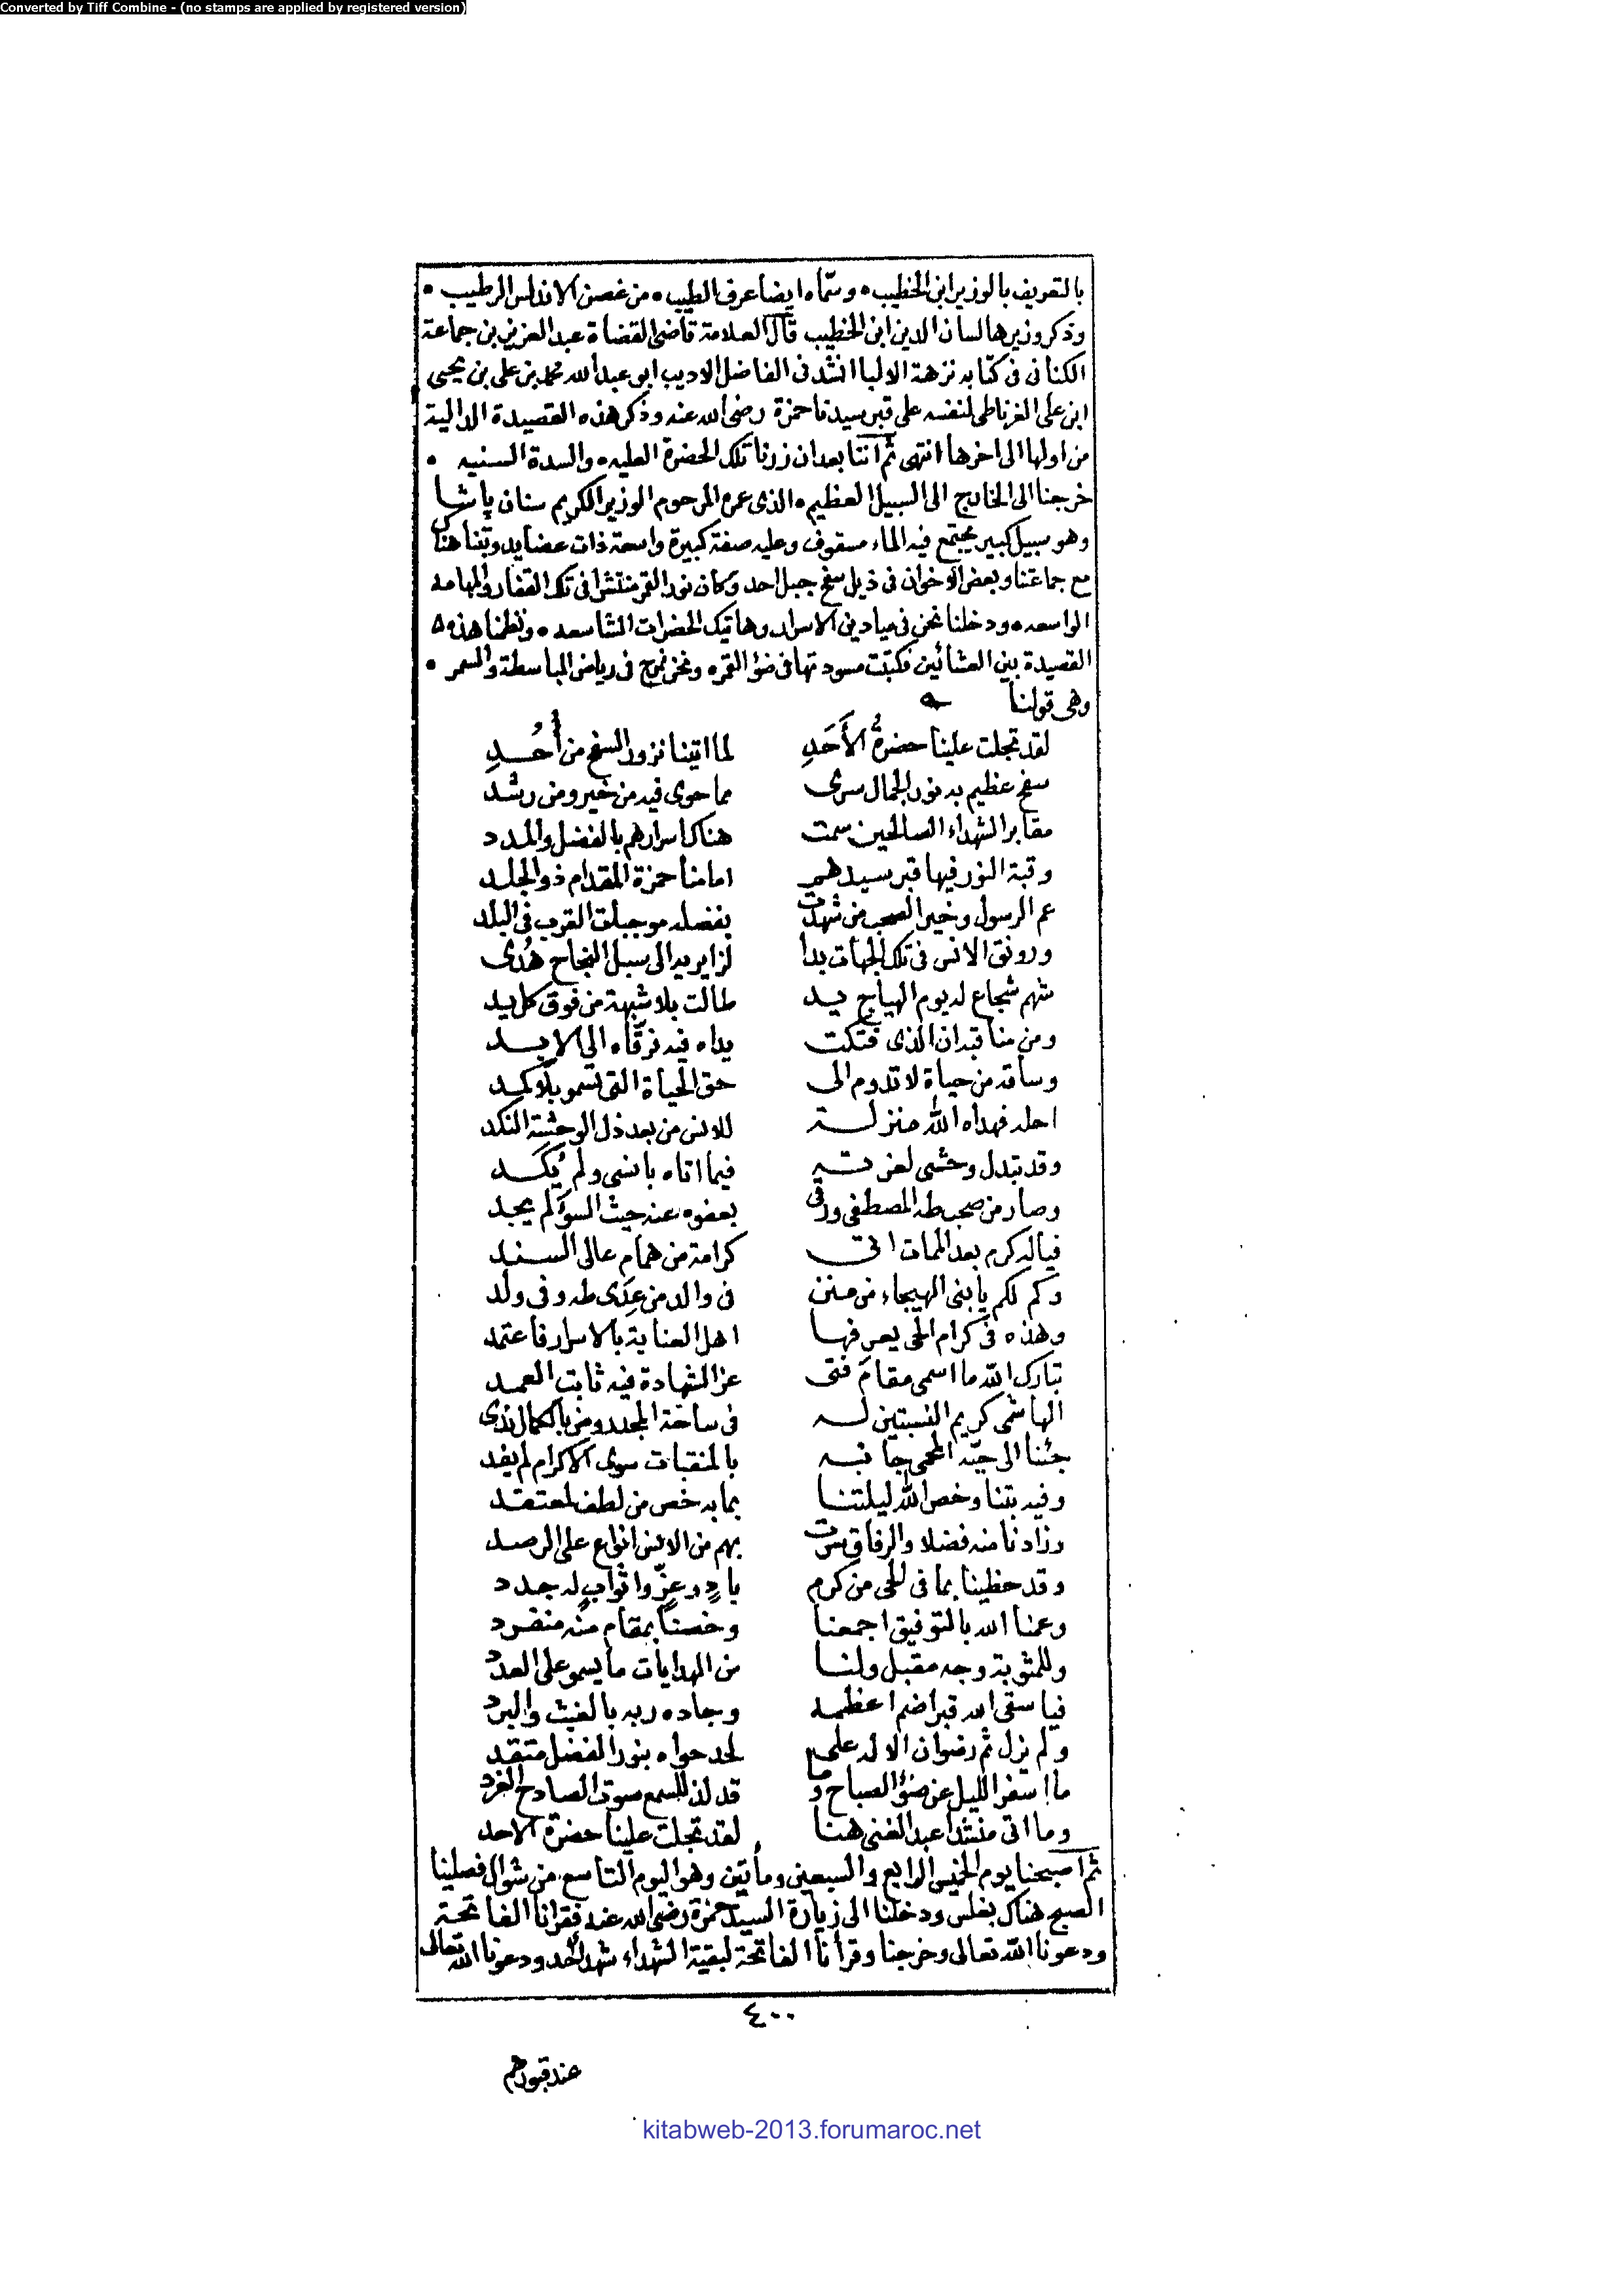 Converted by Tiff Combine - (no stamps are applied by registered version)
بالتعريف بالوزير ابن الخطيب • وسمّاه ايضا عرف الطيب • من غصن الاندلس الرطيب •
وذكر وزيرها لسان الدين ابن الخطيب قال العلامة قاضى القضاة عبد العزيز بن جماعة
الكنانى فى كتابه نزهة الالبا انشدنى الفاضل الاديب ابو عبد الله محمد بن على بن يحيى
ابن على الغرناطى لنفسه على قبر سيدنا حمزة رضى الله عنه وذكر هذه القصيدة الدالية
من اولها الى اخرها انتهى ثم اننا بعد ان زرنا تلك الحضرة العليه • والسدة السنيه •
خرجنا الى الخارج الى السبيل العظيم • الذى عمره المرحوم الوزير الكريم سنان پاشا
وهو سبيل كبير يجتمع فيه الماء مسقوف وعليه صفة كبيرة واسعة ذات عضايد وبتنا هناك
مع جماعتنا وبعض الاخوان فى ذيل سفح جبل احد وكان نور القمر منتشرا فى تلك القفار والمهامه
الواسعه • ودخلنا نحن فى ميادين الاسرار وهاتيك الحضرات الشاسعه • ونظمنا هذه
القصيدة بين العشائين فكتبت مسودتها فى ضوء القمر • ونحن نمرح فى رياض المباسطة والسمر •
وهى قولنا
لقد تجلت علينا حضرةُ الأَحَدِ لما اتينا نزور السفح من أُحُدِ
سفح عظيم به نور الجمال سرى مما حوى فيه من خير ومن رشد
مقابر الشهداء الصالحين سمت هناك اسرارهم بالفضل والمدد
وقبة النور فيها قبر سيدهم امامنا حمزة المقدام ذو الجلد
عم الرسول وخير الصحب من شهدت بفضله موجبات القرب فى البلد
ورونق الانس فى تلك الجهات بدا لزايريه الى سبل النجاح هُدى
شهم شجاع له يوم الهياج يد طالت بلا شبهة من فوق كل يد
ومن مناقبه ان الذى فتكت يداه فيه ترقّاه الى الابد
وساقه من حياة لا تدوم الى حق الحياة التى تسمو بلا كمد
احله فهداه الله منزلة للانس من بعد ذل الوحشة النكد
وقد تبدل وحشى لعزته فيما اتاه بانسى ولم يُكَد
وصار من صحب طه المصطفى ورقى بعفوه عنه حيث السوء لم يجد
فياله كرم بعد الممات اتى كرامة من همام عالى السند
وكم لكم يا بنى الهيجاء من منن فى والد من عِدَى طه وفى ولد
وهذه فى كرام الحى يعرفها اهل العناية بالاسرار فاعتمد
تبارك الله ما اسمى مقامَ فتى عز الشهادة فيه ثابت العمد
الهاشمى كريم النسبتين له فى ساحة المجد ومن بالكمال ندى
جئنا الى حيّه المحمى جانبه بالمنقبات سوى الاكرام لم يفد
وفيه بتنا وخص الله ليلتنا بما به خص من لطف لمعتقد
وزادنا منه فضلا والرفاق سرت بهم من الانس انواع على الرصد
وقد حظينا بما فى الحى من كرم باد وعزّ واثواب له جدد
وعمنا الله بالتوفيق اجمعنا وخصنا بمقام منه منفرد
وللمثوبة وجه مقبل ولنا من الهدايات ما يسمو على العدد
فيا سقى الله قبرا ضم اعظمه وجاده ربه بالغيث والبرد
ولم يزل ثم رضوان الاله على لحد حواه بنور الفضل متقد
ما اسفر الليل عن ضوء الصباح وما قد لذ للسمع صوت الصادح الغرد
وما اتى منشدا عبد الغنى هنا لقد تجلت علينا حضرة الاحد
ثم اصبحنا يوم الخميس الرابع والسبعين ومأتين وهو اليوم التاسع من شوال فصلينا
الصبح هناك بغلس ودخلنا الى زيارة السيد حمزة رضى الله عنه فقرانا الفاتحة
ودعونا الله تعالى وخرجنا وقرأنا الفاتحة لبقية الشهداء شهداء احد ودعونا الله تعالى
٤٠٠
عند قبورهم
kitabweb-2013.forumaroc.net